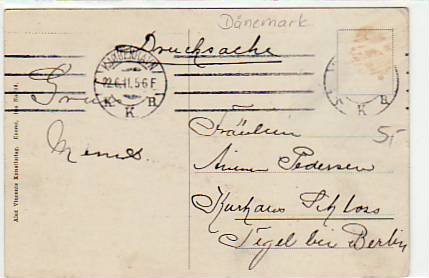 Dänemark
Drucksache
KJØBENHAVN
22.6.11. 5-6 F
K K B
K B
Gruss
Fräulein
Anna Pedersen
Kurhaus Schloss
Tegel bei Berlin
5,-
Alex Vincents Kunstforlag. Eneret.